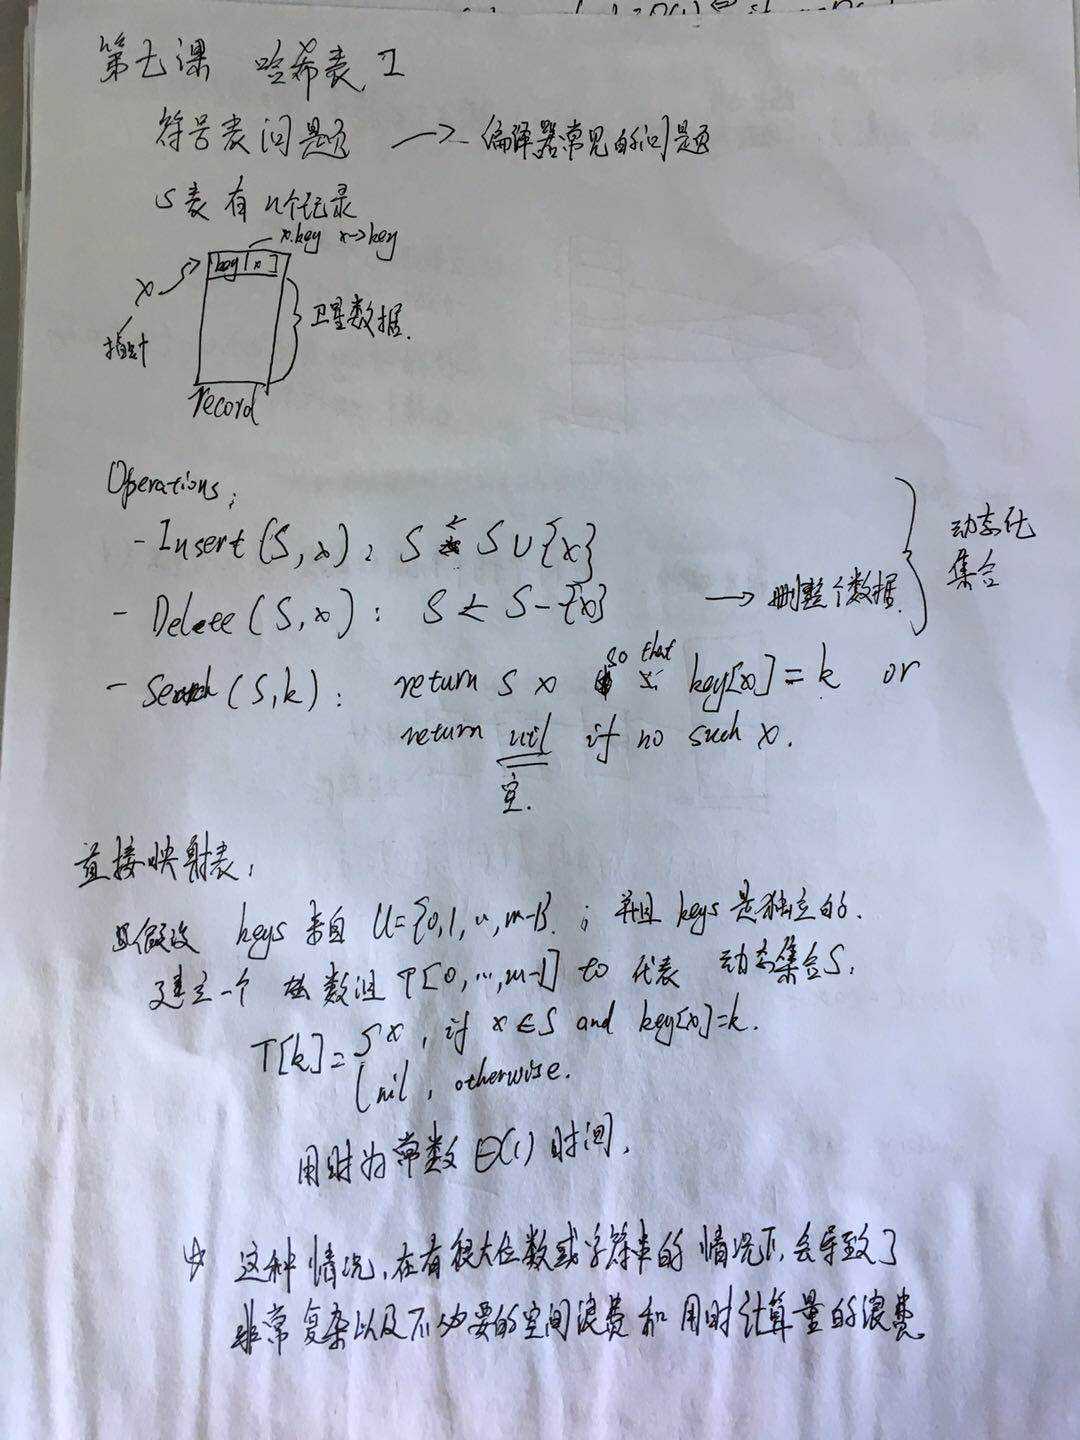 第七课 哈希表 I
符号表问题 → 编译器常见的问题
S表 有 n个记录
x.key x->key
key[x]
x
指针
卫星数据.
record
Operations:
- Insert(S,x): S ← S∪{x}
- Delete(S,x): S ← S-{x} → 删整个数据.
动态化
集合
- Search(S,k): return x so that key[x]=k or
return nil if no such x.
空.
直接映射表:
假设 keys 来自 U={0,1,..,m-1}. ; 并且 keys 是独立的.
建立一个 数组 T[0,...,m-1] to 代表 动态集合S.
T[k]={ x, if x∈S and key[x]=k.
nil, otherwise.
用时为常数 Θ(1) 时间.
☆ 这种情况,在有很大位数或字符串的情况下,会导致了
非常复杂以及不必要的空间浪费和用时计算量的浪费.